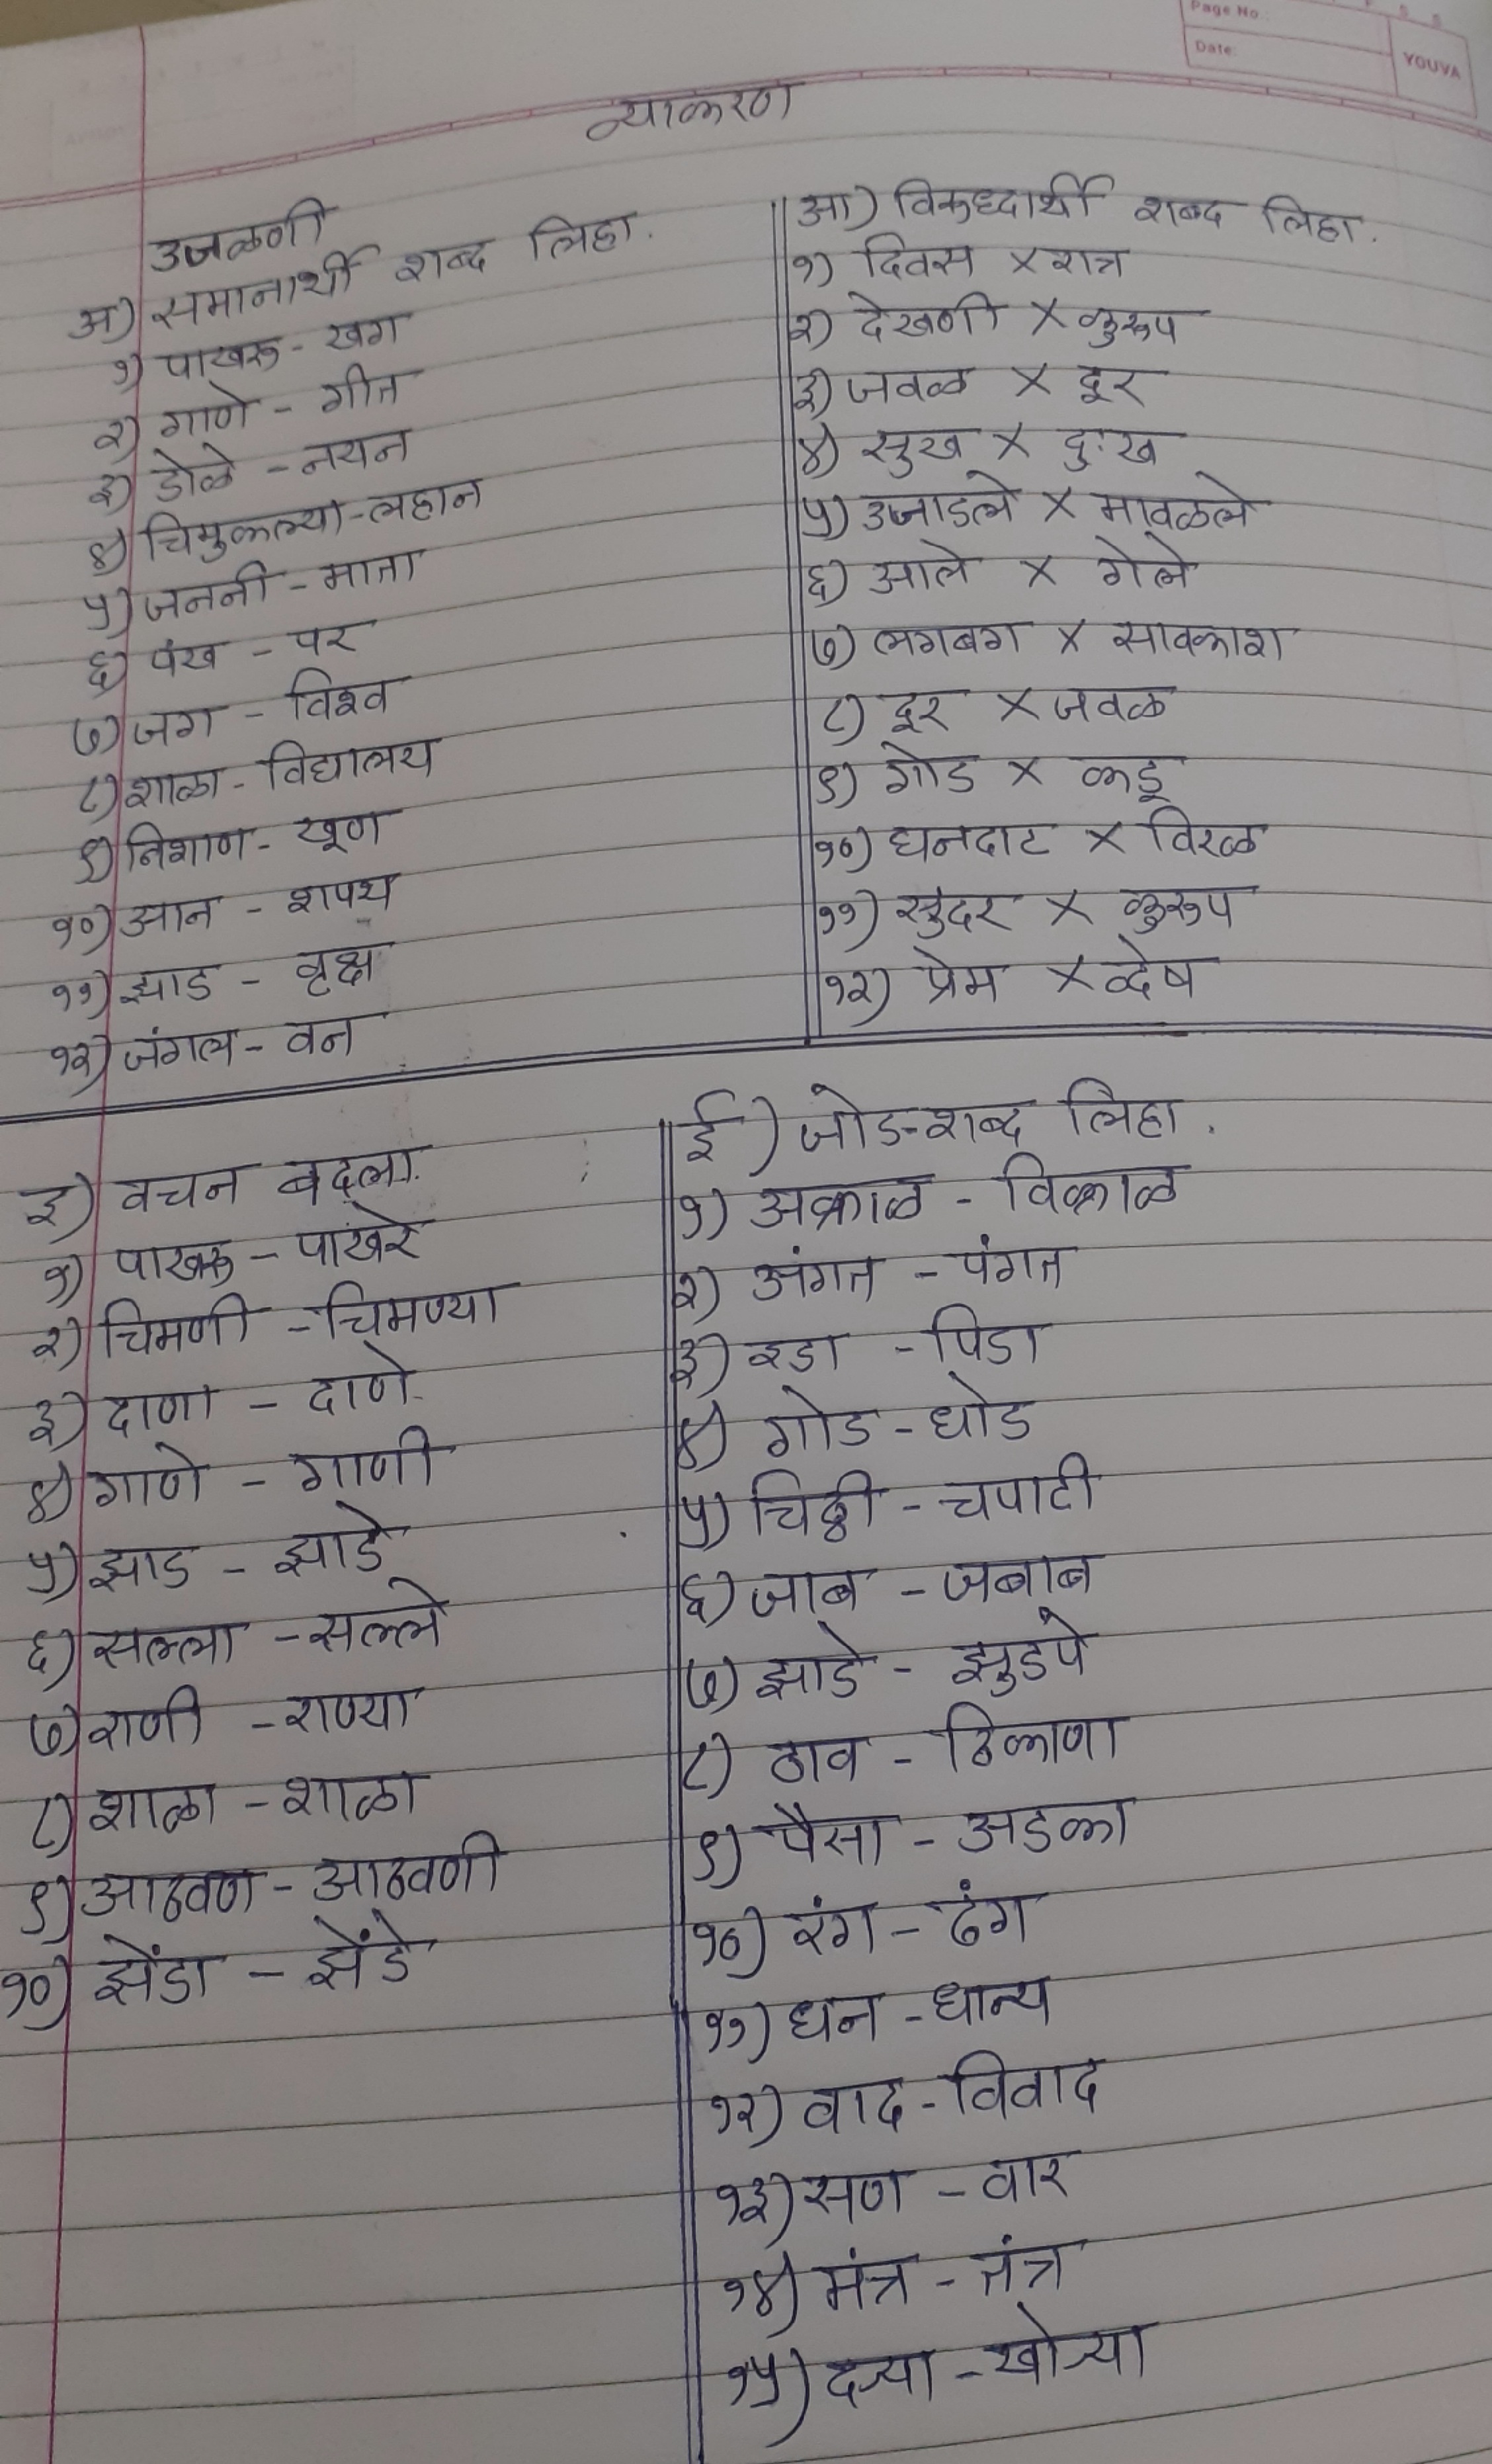 Page No.:
Date:
YOUVA
व्याकरण
उजळणी
अ) समानार्थी शब्द लिहा.
१) पाखरू - खग
२) गाणे - गीत
३) डोळे - नयन
४) चिमुकल्या - लहान
५) जननी - माता
६) पंख - पर
७) जग - विश्व
८) शाळा - विद्यालय
९) निशाण - खूण
१०) आन - शपथ
११) झाड - वृक्ष
१२) जंगल - वन
आ) विरुध्दार्थी शब्द लिहा.
१) दिवस X रात्र
२) देखणी X कुरूप
३) जवळ X दूर
४) सुख X दुःख
५) उजाडले X मावळले
६) आले X गेले
७) लगबग X सावकाश
८) दूर X जवळ
९) गोड X कडू
१०) घनदाट X विरळ
११) सुंदर X कुरूप
१२) प्रेम X व्देष
इ) वचन बदला.
१) पाखरू - पाखरे
२) चिमणी - चिमण्या
३) दाणा - दाणे
४) गाणे - गाणी
५) झाड - झाडे
६) सल्ला - सल्ले
७) राणी - राण्या
८) शाळा - शाळा
९) आठवण - आठवणी
१०) झेंडा - झेंडे
ई) जोड-शब्द लिहा.
१) अक्राळ - विक्राळ
२) अंगत - पंगत
३) इडा - पिडा
४) गोड - धोड
५) चिठ्ठी - चपाटी
६) जाब - जबाब
७) झाडे - झुडपे
८) ठाव - ठिकाणा
९) पैसा - अडका
१०) रंग - ढंग
११) धन - धान्य
१२) वाद - विवाद
१३) सण - वार
१४) मंत्र - तंत्र
१५) दऱ्या - खोऱ्या